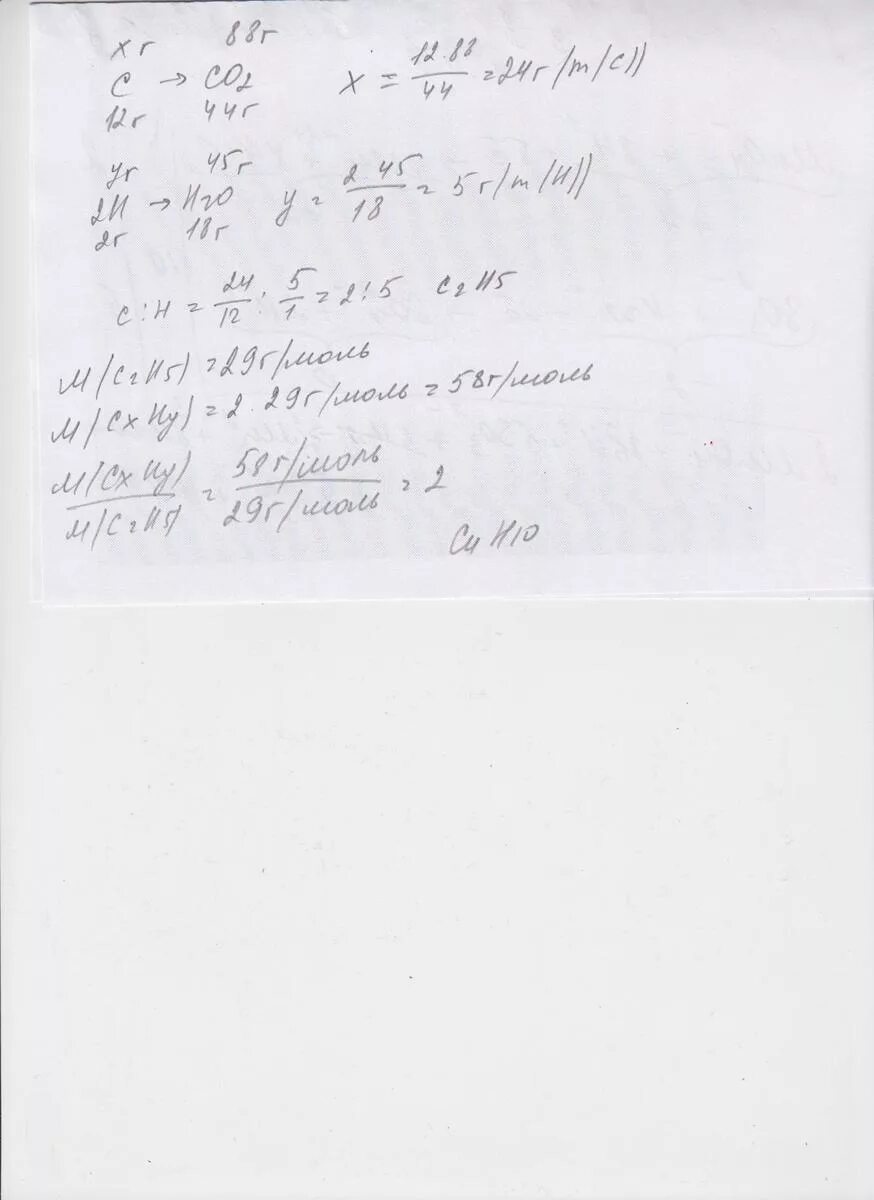 хг 88г
C → CO2 X = 12.88/44 = 24г/m/C))
12г 44г
уг 45г
2H → H2O y = 2 45/18 = 5г/m/H))
2г 18г
C:H = 24/12 : 5/1 = 2:5 C2H5
M/C2H5) = 29г/моль
M/CxHy) = 2.29г/моль = 58г/моль
M(CxHy)/M/C2H5) = 58г/моль/29г/моль = 2
C4H10